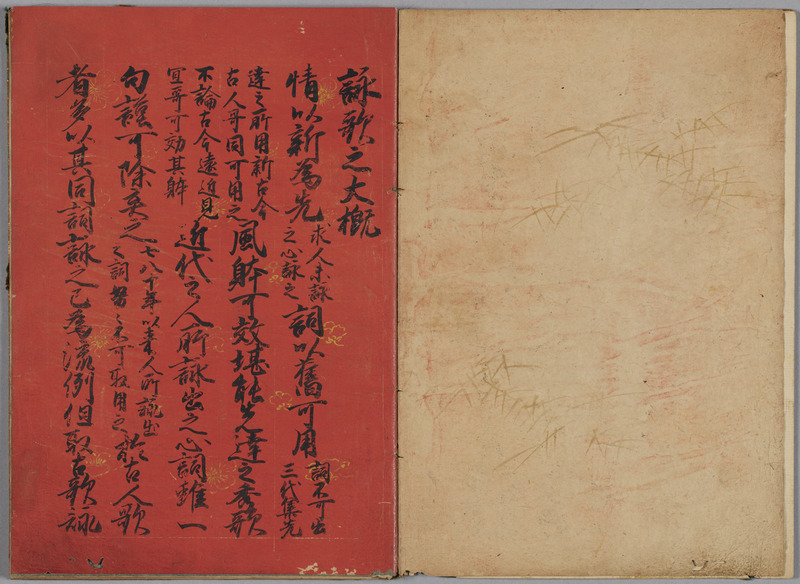 詠歌之大概
情以新為先 求人未詠之心詠之 詞以舊可用 詞不可出三代集先
達之所用新古今古人哥同可用之 風躰可效堪能先達之秀歌
不論古今遠近見宜哥可効其躰 近代之人所詠出之心詞雖一
句謹可除棄之 七八十年以来人所詠出之詞努々不可取用之 於古人歌
者多以其同詞詠之已為流例但取古歌詠